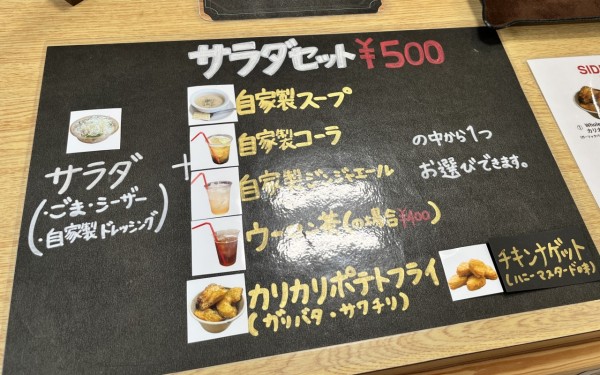 サラダセット ¥500
サラダ
(・ごま・シーザー
・自家製ドレッシング)
+
自家製スープ
自家製コーラ
自家製ジンジャエール
ウーロン茶(の場合¥400)
カリカリポテトフライ
(ガリバタ・サワチリ)
の中から1つ
お選びできます。
チキンナゲット
(ハニーマスタード味)
SIDE
①